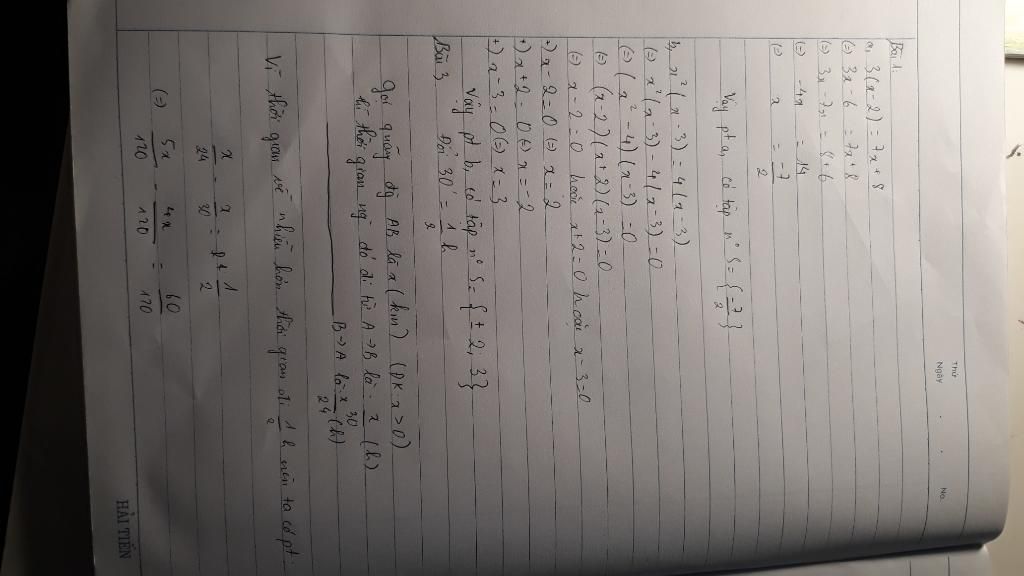 Thứ
Ngày . . No.
Bài 1:
a, 3(x-2) = 7x+8
(=) 3x-6 = 7x+8
(=) 3x-7x = 8+6
(=) -4x = 14
(=) x = -7/2
Vậy pt a, có tập n° S = {-7/2}
b, x²(x-3) = 4(x-3)
(=) x²(x-3) - 4(x-3) = 0
(=) (x²-4)(x-3) = 0
(=) (x-2)(x+2)(x-3) = 0
(=) x-2=0 hoặc x+2=0 hoặc x-3=0
+) x-2=0 (=) x=2
+) x+2=0 (=) x=-2
+) x-3=0 (=) x=3
Vậy pt b, có tập n° S = {±2, 3}
Bài 3. Đổi 30' = 1/2 h
Gọi quãng độ AB là x (km) (ĐK x>0)
thì thời gian ng đó đi từ A→B là: x/30 (h)
B→A là: x/24 (h)
Vì thời gian về nhiều hơn thời gian đi 1/2 h nên ta có pt:
x/24 - x/30 = 1/2
(=) 5x/120 - 4x/120 = 60/120
HẢI TIẾN